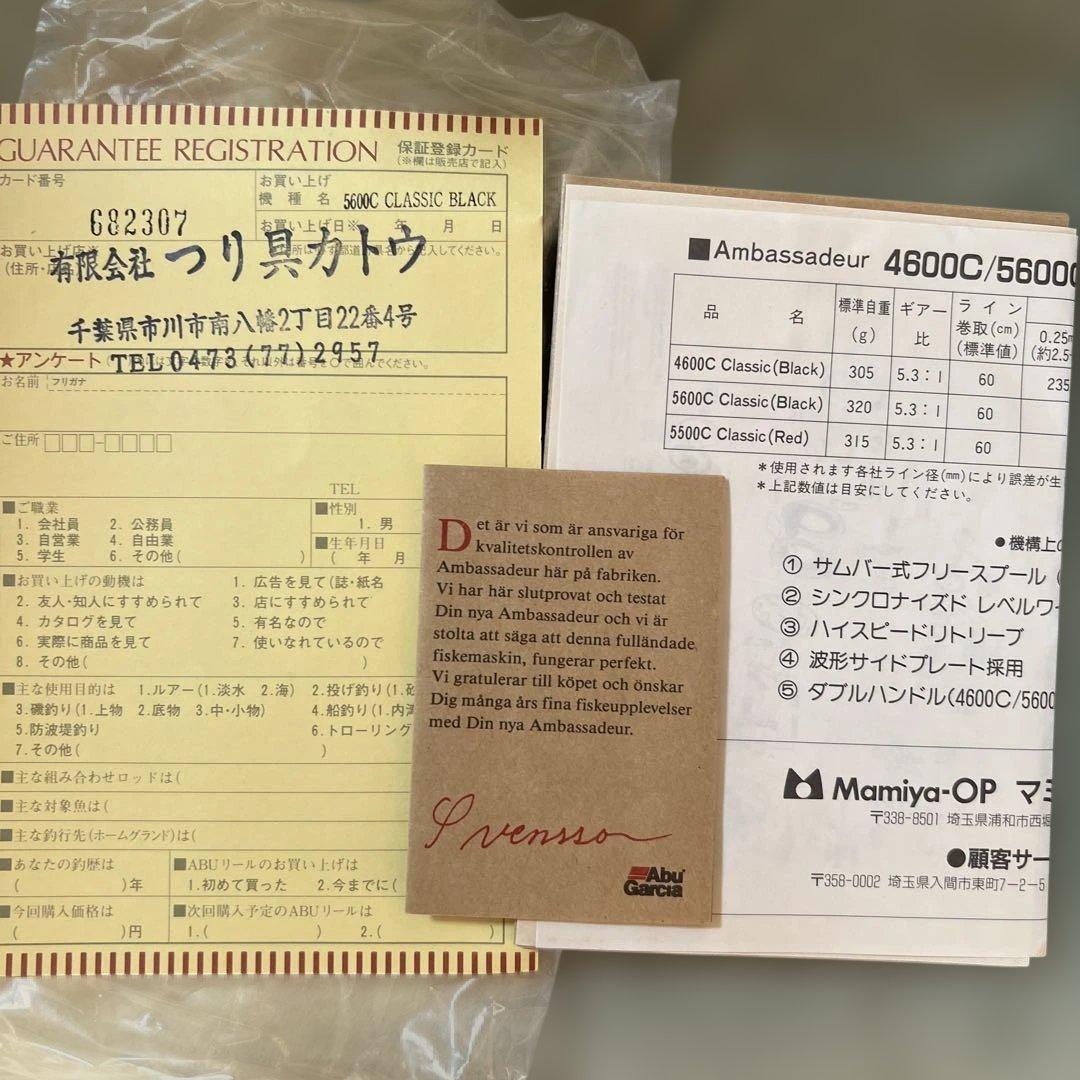 GUARANTEE REGISTRATION 保証登録カード
(※欄は販売店で記入)
カード番号
682307
お買い上げ
機種名 5600C CLASSIC BLACK
お買い上げ日※ 年 月 日
お買い上げ店※
(住所・店
有限会社 つり具カトウ
千葉県市川市南八幡2丁目22番4号
TEL0473(77)2957
★アンケート
それ以外は番号を○で囲んでください。
お名前 フリガナ
ご住所 □□□-□□□□
TEL
■ご職業
1. 会社員 2. 公務員
3. 自営業 4. 自由業
5. 学生 6. その他( )
■性別
1. 男
■生年月日
( 年 月
■お買い上げの動機は 1. 広告を見て(誌・紙名
2. 友人・知人にすすめられて 3. 店にすすめられて
4. カタログを見て 5. 有名なので
6. 実際に商品を見て 7. 使いなれているので
8. その他( )
■主な使用目的は 1.ルアー(1.淡水 2.海) 2.投げ釣り(1.
3.磯釣り(1.上物 2.底物 3.中・小物) 4.船釣り(1.内
5.防波堤釣り 6.トローリング
7.その他( )
■主な組み合わせロッドは(
■主な対象魚は(
■主な釣行先(ホームグランド)は(
■あなたの釣歴は
( )年
■ABUリールのお買い上げは
1.初めて買った 2.今までに(
■今回購入価格は
( )円
■次回購入予定のABUリールは
1.( ) 2.( )
Det är vi som är ansvariga för
kvalitetskontrollen av
Ambassadeur här på fabriken.
Vi har här slutprovat och testat
Din nya Ambassadeur och vi är
stolta att säga att denna fulländade
fiskemaskin, fungerar perfekt.
Vi gratulerar till köpet och önskar
Dig många års fina fiskeupplevelser
med Din nya Ambassadeur.
Svensson
Abu
Garcia
■Ambassadeur 4600C/5600C
品名 標準自重(g) ギアー比 ライン巻取(cm)(標準値) 0.25
(約2.5
4600C Classic(Black) 305 5.3:1 60 235
5600C Classic(Black) 320 5.3:1 60
5500C Classic(Red) 315 5.3:1 60
*使用されます各社ライン径(mm)により誤差が生
*上記数値は目安にしてください。
●機構上の
① サムバー式フリースプール(
② シンクロナイズド レベルワ
③ ハイスピードリトリーブ
④ 波形サイドプレート採用
⑤ ダブルハンドル(4600C/5600
Mamiya-OP マミ
〒338-8501 埼玉県浦和市西堀
●顧客サー
〒358-0002 埼玉県入間市東町7-2-5